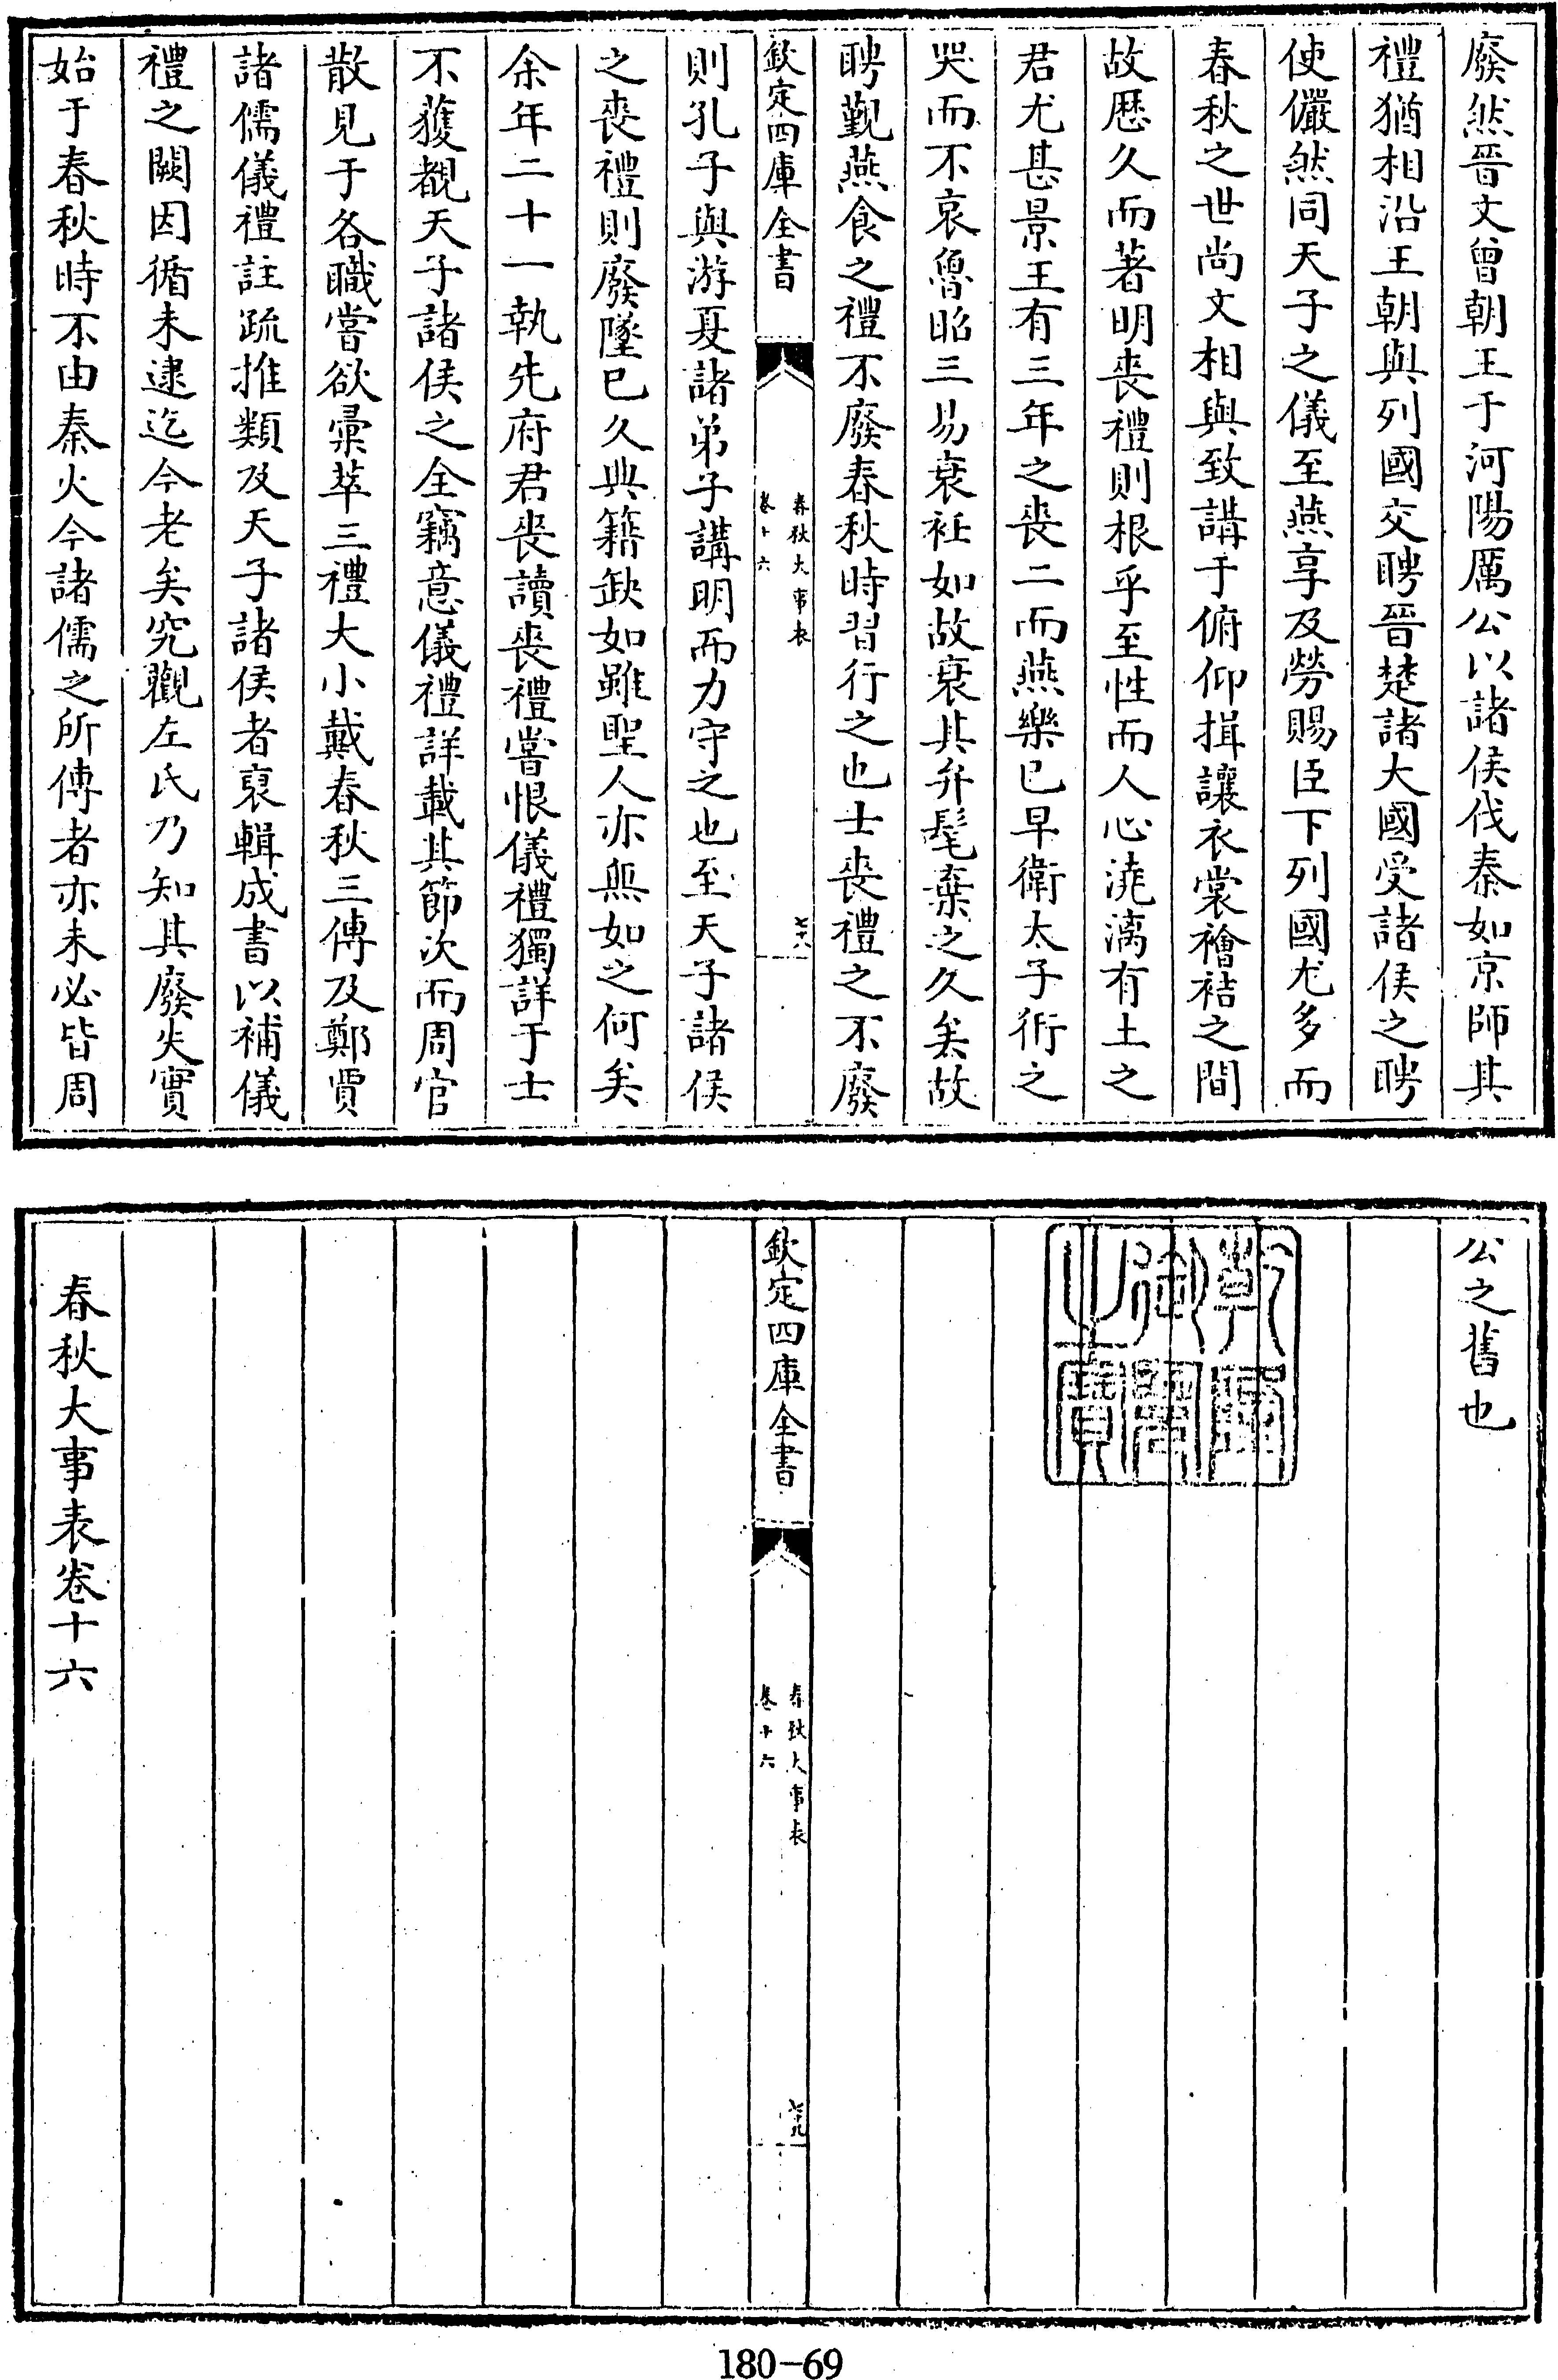 廢然晉文曾朝王于河陽厲公以諸侯伐秦如京師其
禮猶相沿王朝與列國交聘晉楚諸大國受諸侯之聘
使儼然同天子之儀至燕享及勞賜臣下列國尤多而
春秋之世尚文相與致講于俯仰揖讓衣裳襘袺之間
故歴久而著明喪禮則根乎至性而人心澆漓有土之
君尤甚景王有三年之喪二而燕樂已早衛太子衎之
哭而不哀魯昭三易衰衽如故衰其弁髦棄之久矣故
聘覲燕食之禮不廢春秋時習行之也士喪禮之不廢
欽定四庫全書
春秋大事表
卷十六
七十八
則孔子與游夏諸弟子講明而力守之也至天子諸侯
之喪禮則廢墜已久典籍缺如雖聖人亦無如之何矣
余年二十一執先府君喪讀喪禮嘗恨儀禮獨詳于士
不獲覩天子諸侯之全竊意儀禮詳載其節次而周官
散見于各職嘗欲彙萃三禮大小戴春秋三傳及鄭賈
諸儒儀禮註疏推類及天子諸侯者裒輯成書以補儀
禮之闕因循未逮迄今老矣究觀左氏乃知其廢失實
始于春秋時不由秦火今諸儒之所傳者亦未必皆周
公之舊也
乾隆御覽之寶
欽定四庫全書
春秋大事表
卷十六
七十九
春秋大事表卷十六
180-69